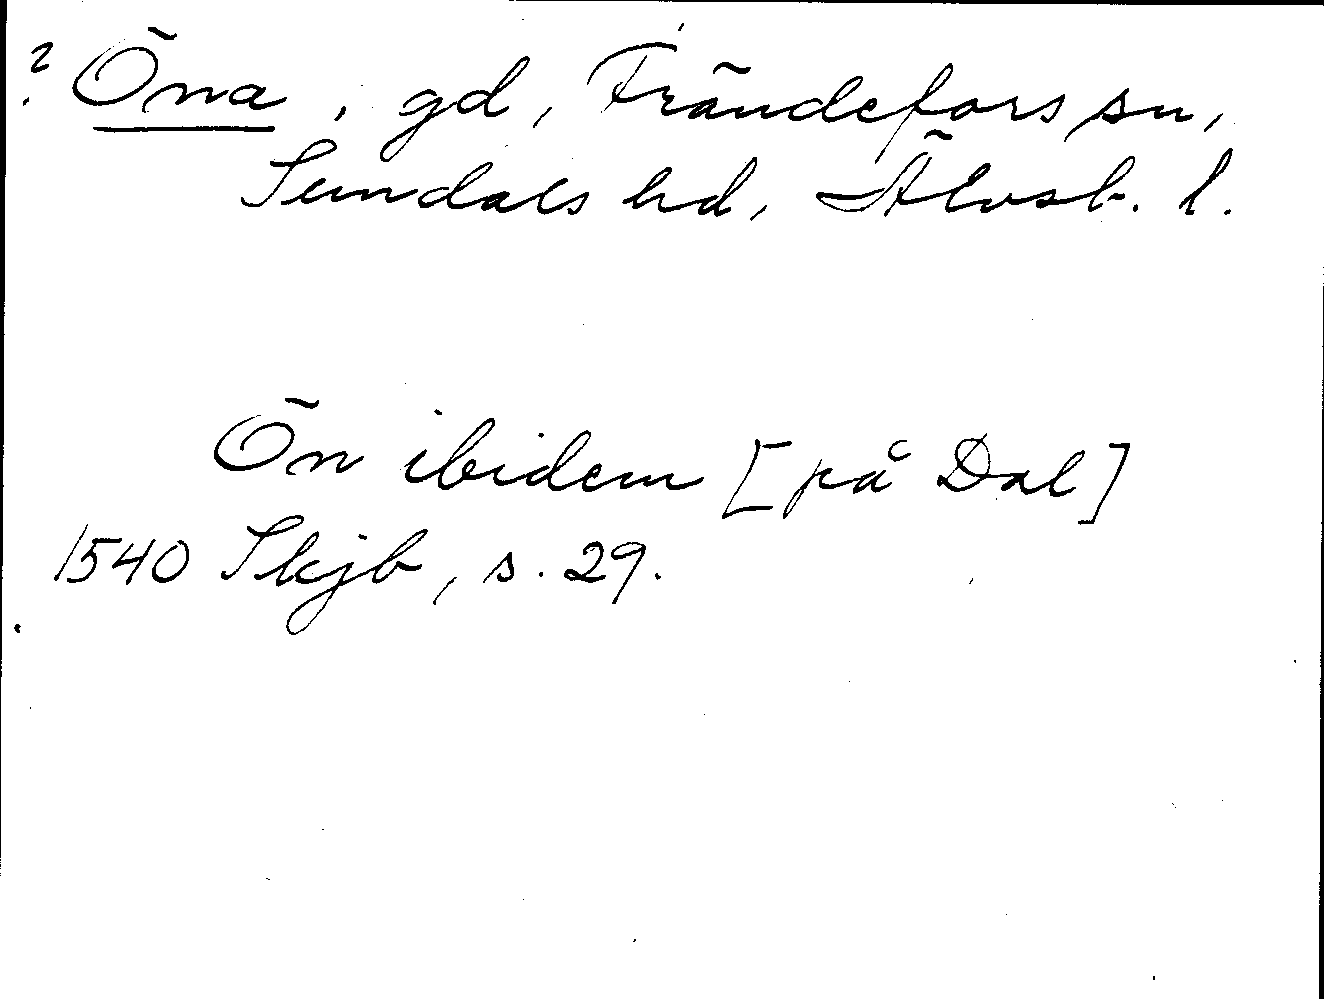 ? Öna, gd, Frändefors sn,
Sundals hd, Älvsb. l.
Ön ibidem [på Dal]
1540 Skjb, s. 29.